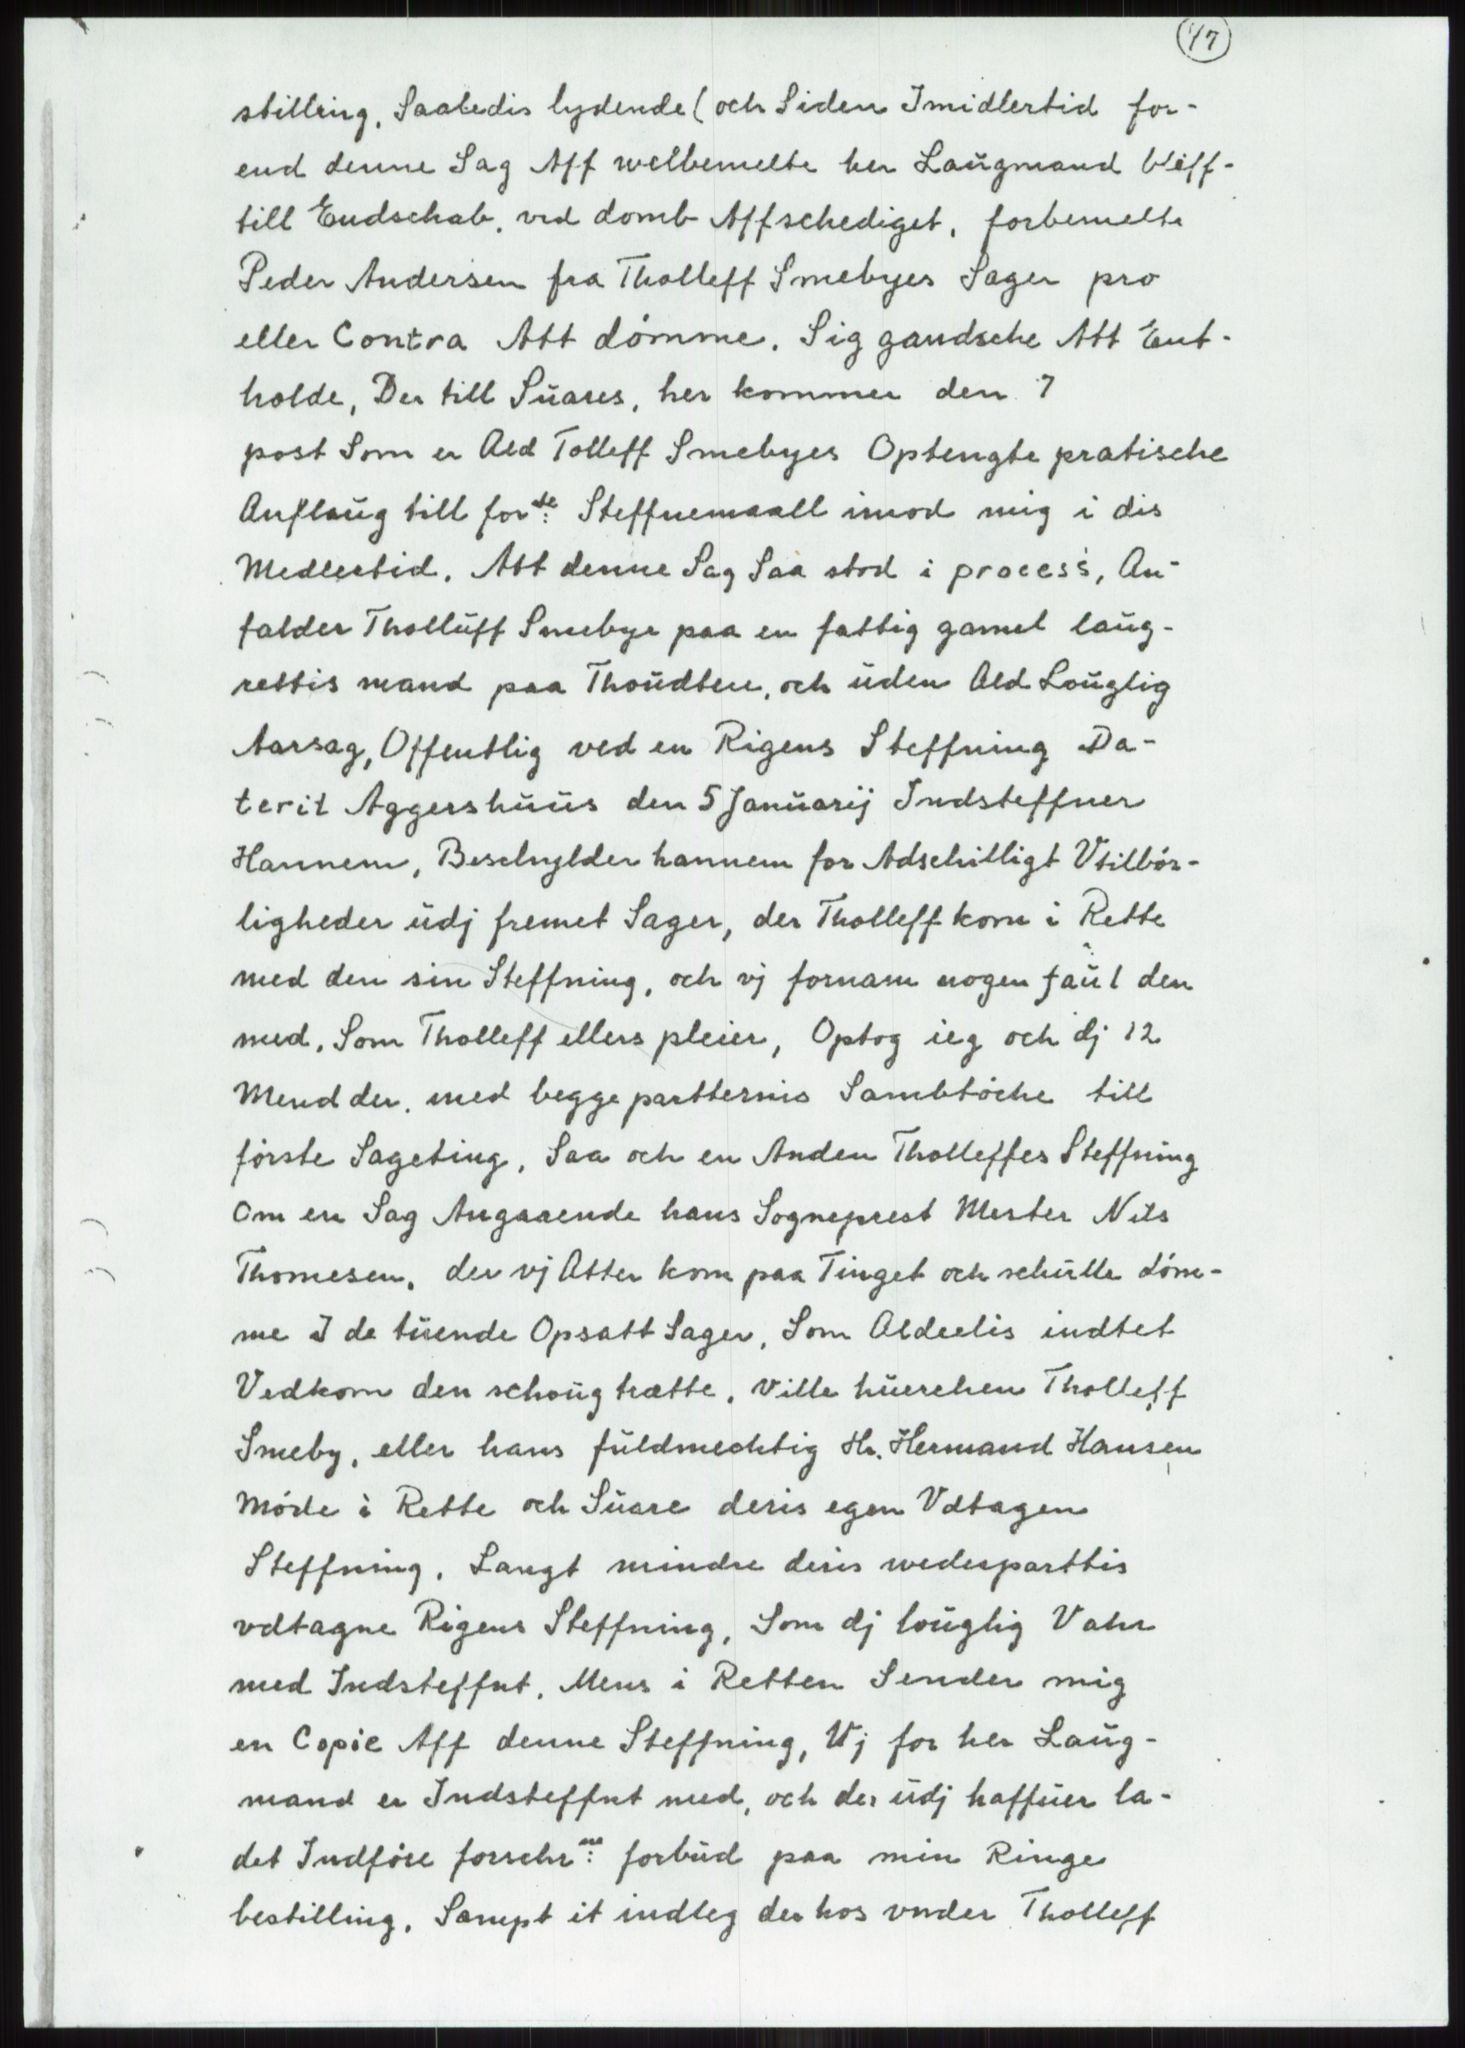 47
stilling, Saaledis lydende (och Siden Imidlertid for-
end denne Sag Aff welbemelte her Laugmand bleff-
till Endschab, ved domb Affschediget, forbemelte
Peder Andersen fra Tholleff Smebyes Sager pro
eller Contra Att dömme, Sig gandsche Att Ent-
holde, Der till Suares, her kommer den 7
post Som er Ald Tolleff Smebyes Optengte pratische
Anflaug till forde: Steffnemaall imod mig i dis
Medlertid. Att denne Sag Saa stod i process, An-
falder Tholluff Smebye paa en fattig gamel laug-
rettis mand paa Thoudten, och uden Ald Louglig
Aarsag, Offentlig ved en Rigens Steffning Da-
terit Aggershuus den 5 Januarij Indsteffner
Hannem, Beschylder hannem for Adschilligt Vtilbör-
ligheder udj fremet Sager, der Tholleff kom i Rette
med den sin Steffning, och vj fornam nogen faul den
med, Som Tholleff ellers pleier, Optog ieg och dj 12
Mend der, med begge partternis Sambtöche till
förste Sageting, Saa och en Anden Tholleffes Steffning
om en Sag Angaaende hans Sogneprest Mester Nils
Thomesen, der vj Atter kom paa Tinget och schulle döm-
me I de tuende Opsatt Sager, Som Aldeelis indtet
Vedkom den schoug trætte, Ville huerchen Tholleff
Smeby, eller hans fuldmechtig Hr. Hermand Hansen
Möde i Rette och Suare deris egen Vdtagen
Steffning, Langt mindre deris wederparttis
vdtagne Rigens Steffning, Som dj louglig Vahr
med Indsteffnt, Mens i Retten Sender mig
en Copie Aff denne Steffning, Vj for her Laug-
mand er Indsteffnt med, och der udj haffuer la-
det Indföre forschrne: forbud paa min Ringe
bestilling, Sampt it indleg der hos vnder Tholleff